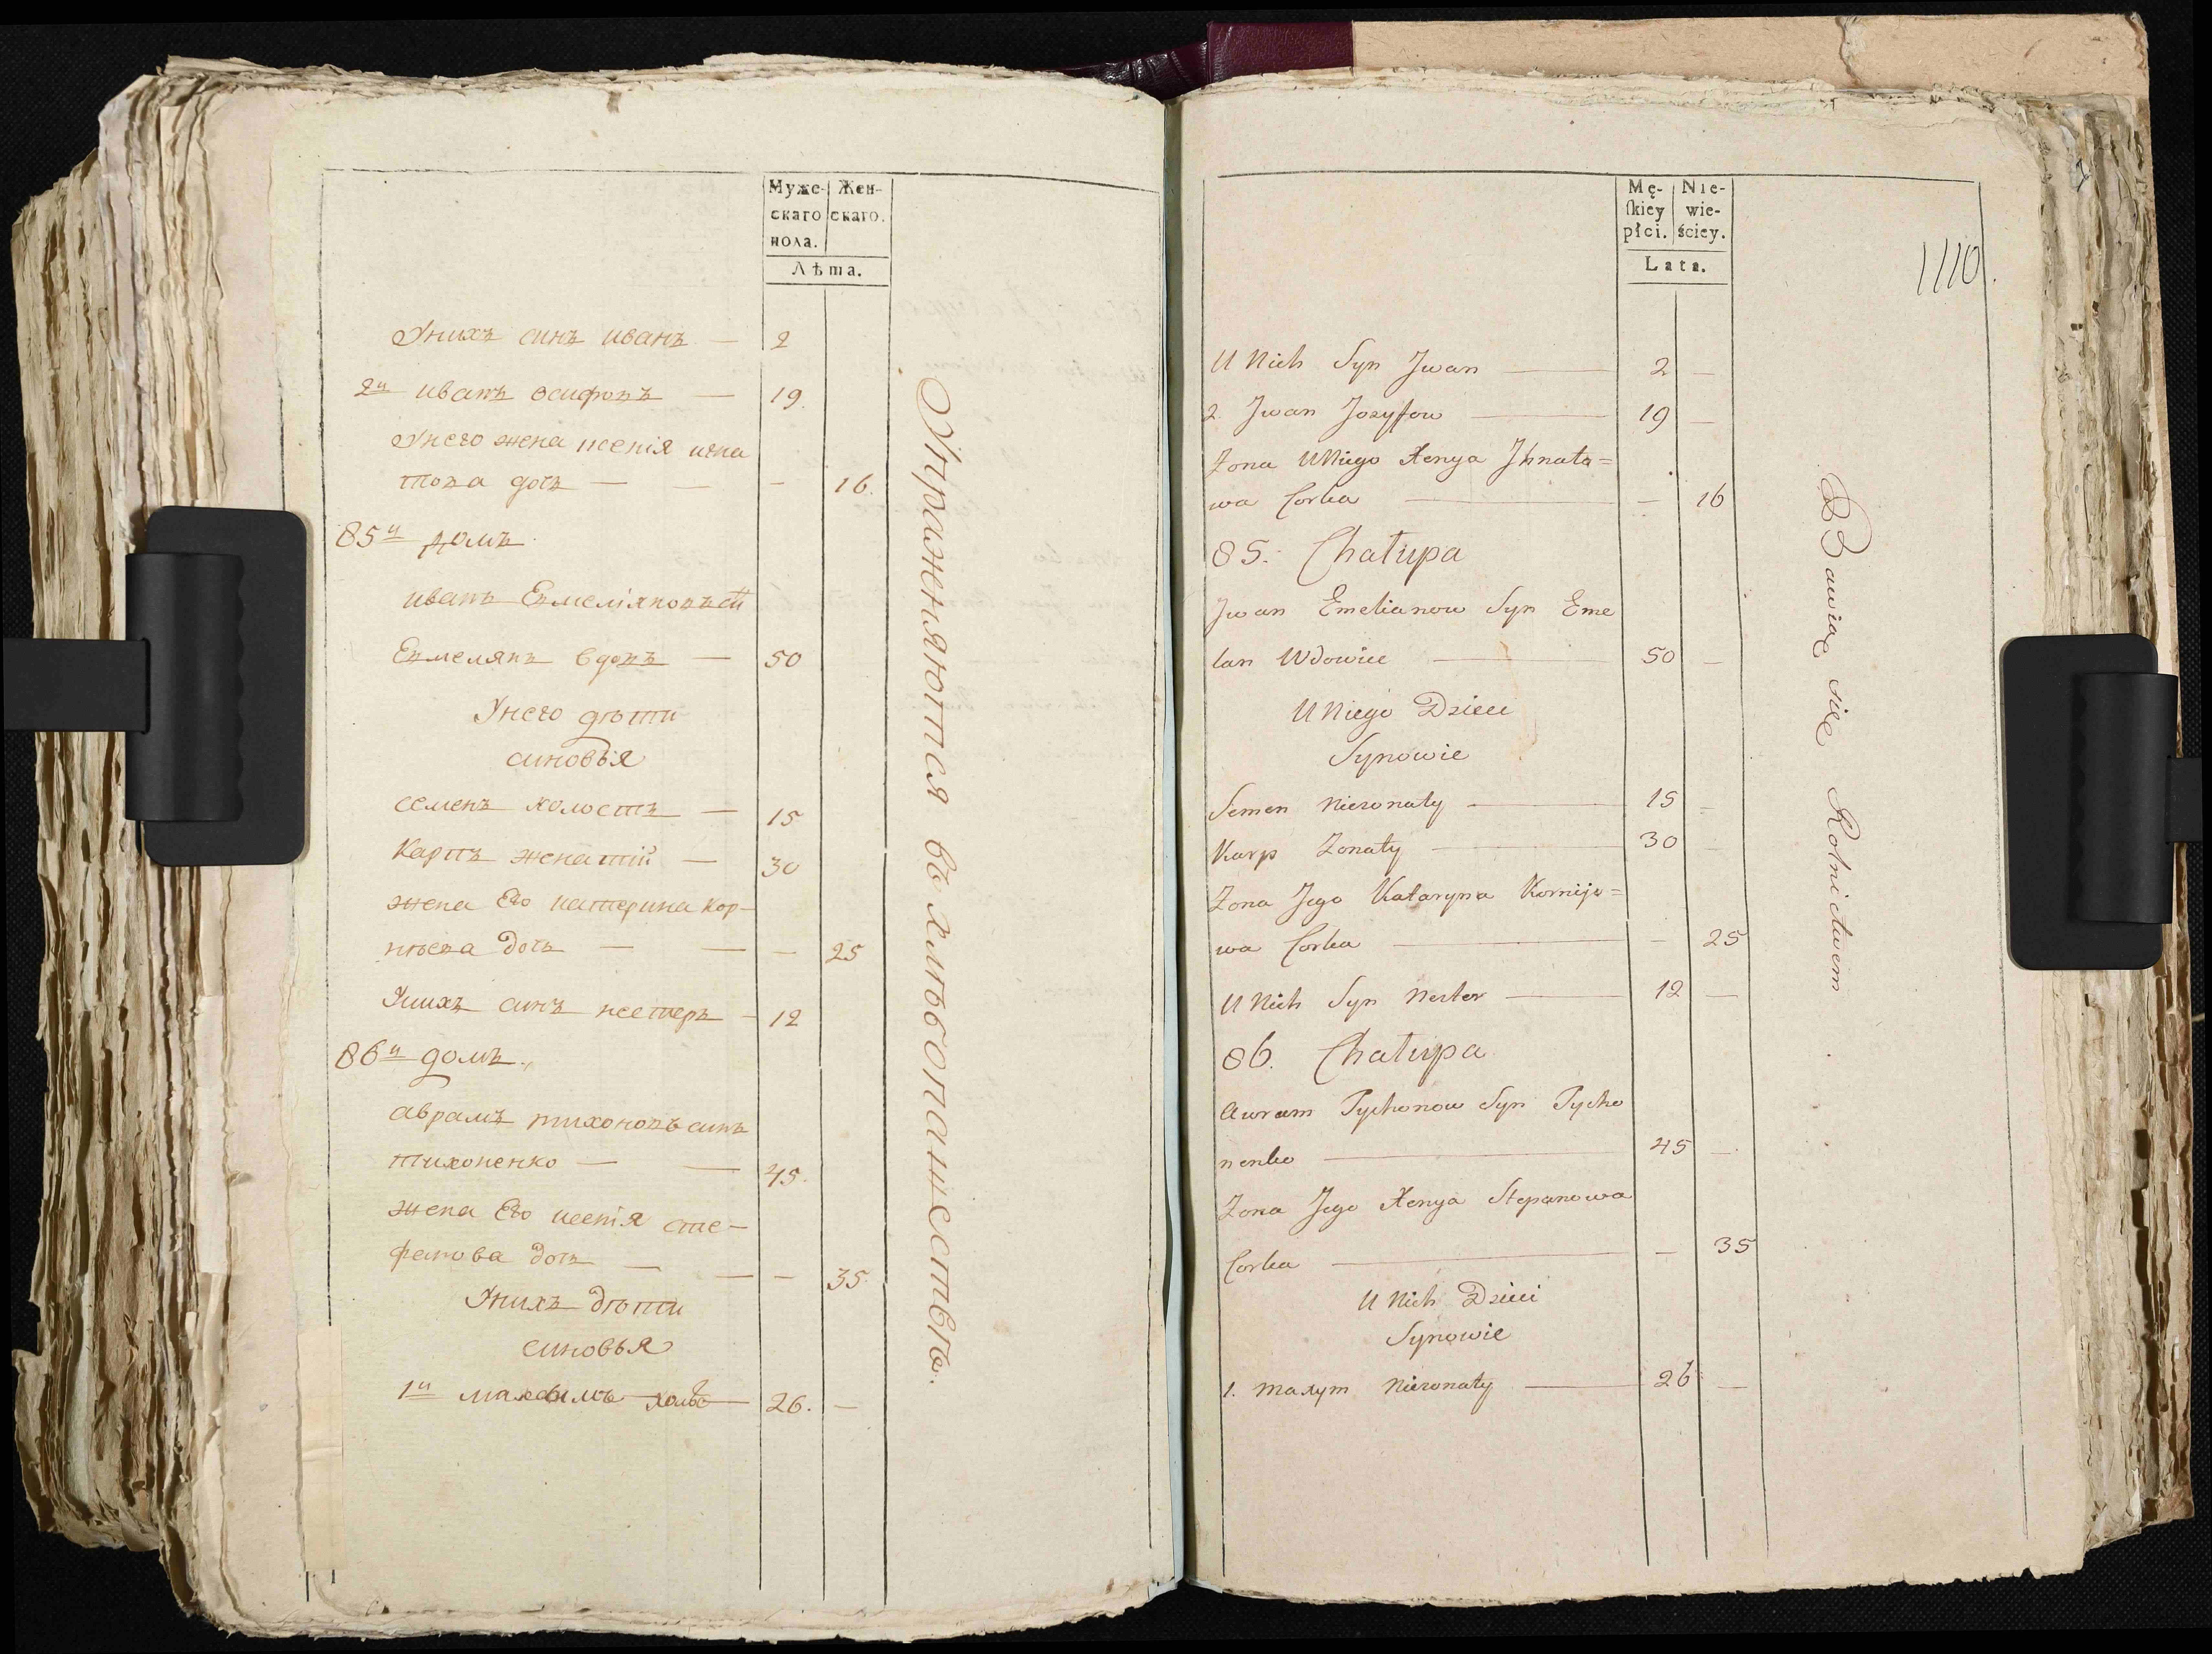 Муже- Жен-
скаго скаго.
пола.
Лѣта.
Унихъ синъ иванъ — 2
2й иванъ осифовъ — 19.
Унего жена ксенія игна
това дочъ — — — 16.
85й домъ.
иванъ Евмеліяновъ сн
Евмелянъ вдовъ — 50
Унего дѣти
синовья
семенъ холостъ — 15
Карпъ женатій — 30
жена Его катерина кор-
нѣева дочъ — — — 25
Унихъ синъ нестеръ - 12
86й домъ.
аврамъ тихоновъ синъ
тихоненко — — 45.
жена Его ксенія сте-
фанова дочъ — — — 35.
Унихъ дѣти
синовья
1й махсимъ холос 26. —
Упражняются въ хлѣбопашествѣ.
Mę- Nie-
skiey wie-
płci. ściey.
Lata.
1110.
U Nich Syn Jwan — 2 —
2. Jwan Jozyffow — 19 —
Zona U Niego Xenya Jhnato=
wa Corka — — 16
85. Chałupa
Jwan Emelianow Syn Eme
lan Wdowiec — 50 —
U Niego Dzieci
Synowie
Semen Niezonaty — 15 —
Karp Zonaty — 30 —
Zona Jego Kataryna Kornijo=
wa Corka — — 25
U Nich Syn Nester — 12 —
86. Chałupa
Awram Tychonow Syn Tycho
nenko — 45 —
Zona Jego Xenya Stepanowa
Corka — — 35
U Nich Dzieci
Synowie
1. Maxym Niezonaty — 26 —
Bawią się Rolnictwem